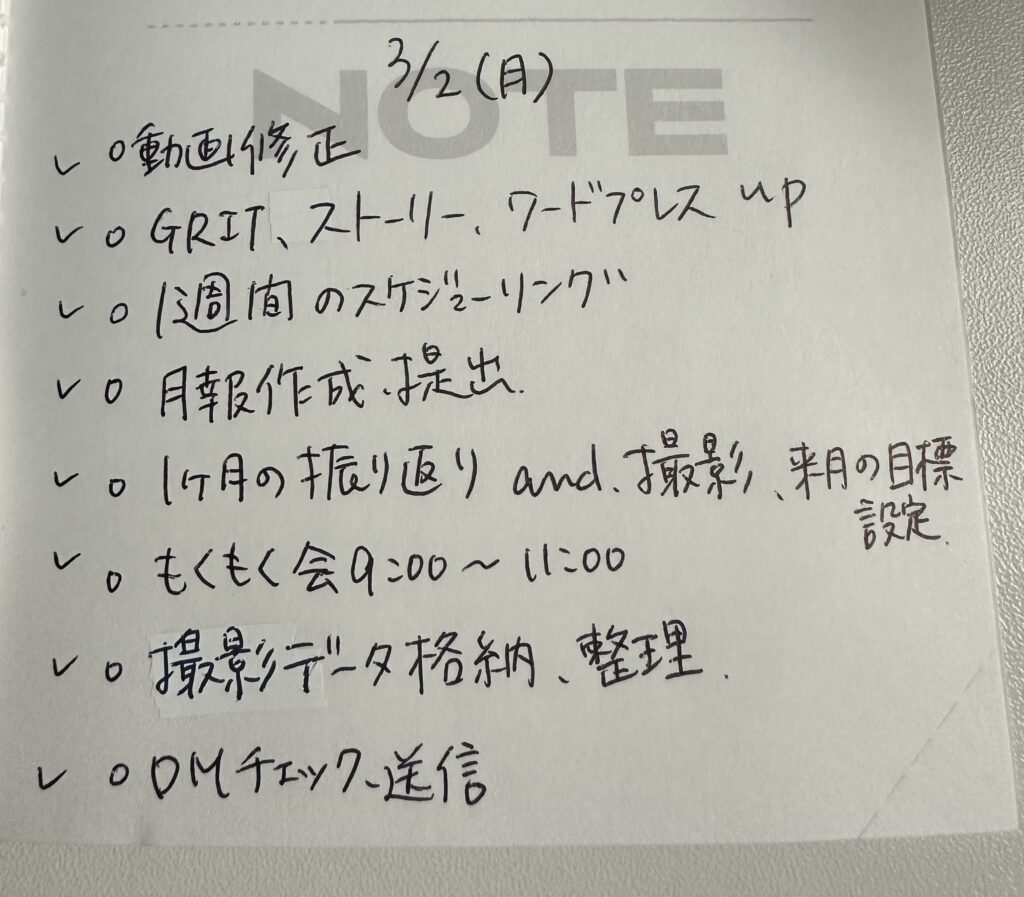 NOTE
3/2(月)
✓ ○動画修正
✓ ○ GRIT、ストーリー、ワードプレス up
✓ ○ 1週間のスケジューリング
✓ ○ 月報作成、提出.
✓ ○ 1ヶ月の振り返り and、撮影、来月の目標
設定.
✓ ○ もくもく会9:00〜11:00
✓ ○ 撮影データ格納、整理.
✓ ○ DMチェック、送信